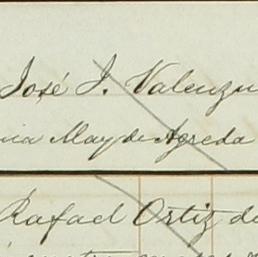 José J. Valenzu
May de Agreda
Rafael Ortiz de